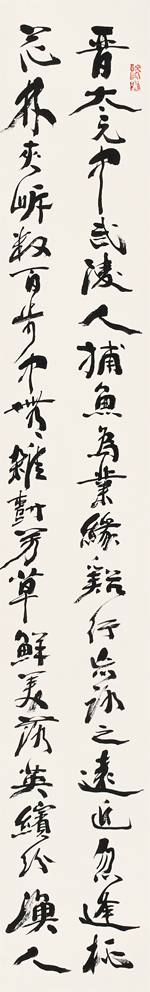 晋太元中武陵人捕魚為業緣谿行忘路之遠近忽逢桃
花林夾岍数百步中無雜樹芳草鮮美落英繽紛漁人